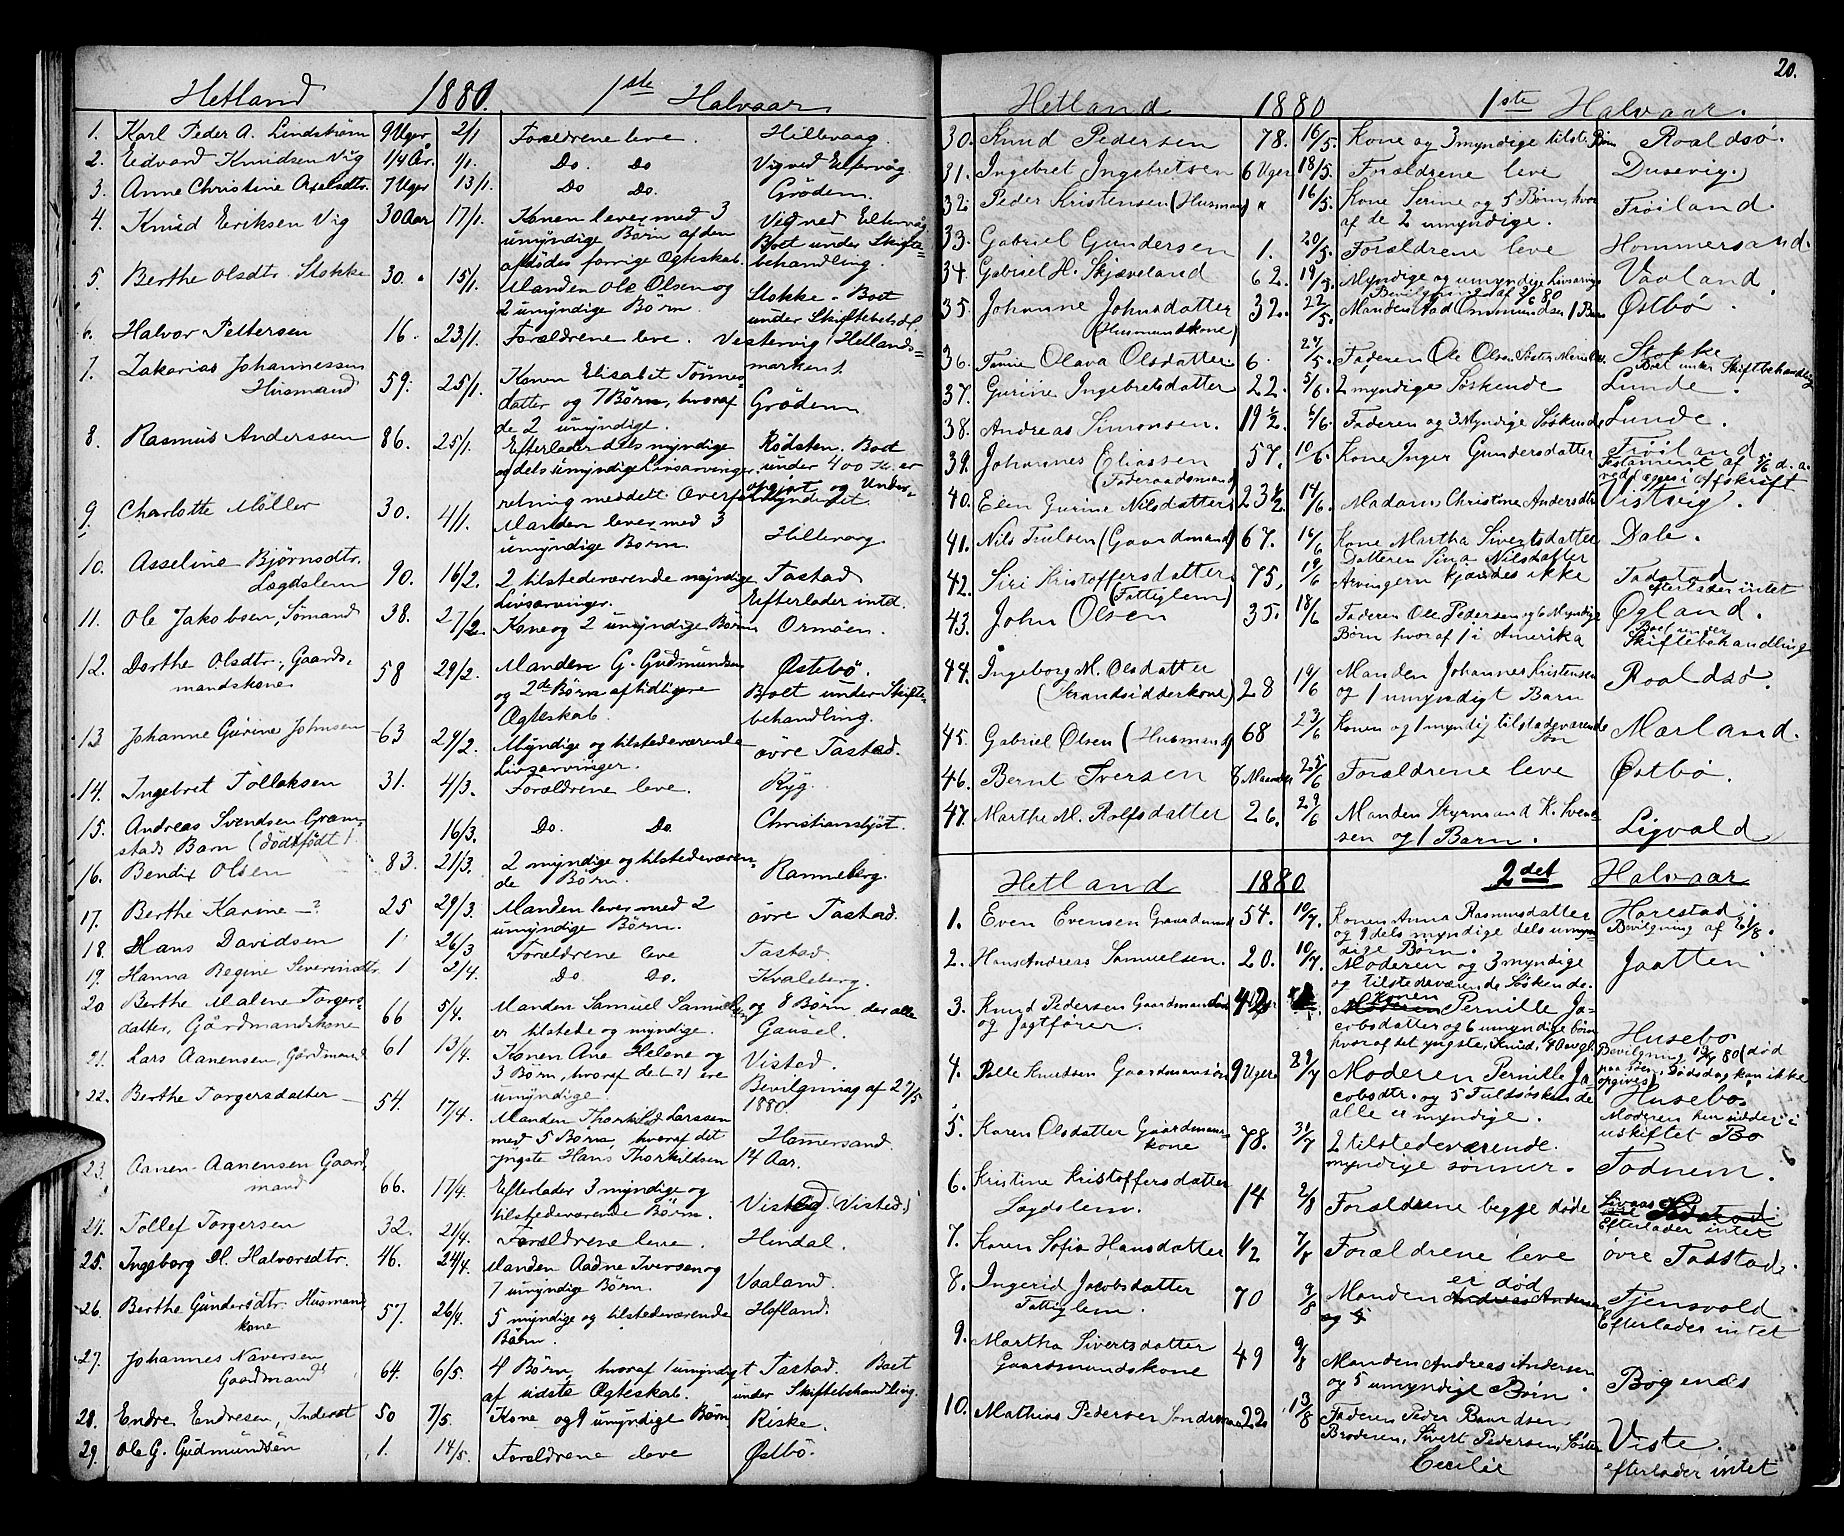 Hetland 1880. 1ste Halvaar
1. Karl Peder A. Lindstrøm 9 Uger 2/1 Forældrene leve. Hillevaag.
2. Edvard Knudsen Vig 1/4 År. 1/1. Do. Do Vigved
3. Anne Christine Axelsdtr. 7 Uger 13/1. Do Do. Grödem.
4. Knud Eriksen Vig 30 Aar 17/1. Konen lever med 3
umyndige Börn af den
afdödes forrige Ægteskab.
Boet under Skifte-
behandling.
5. Berthe Olsdtr. Stokke 30. " 15/1. Manden Ole Olsen og
2 umyndige Börn.
Stokke. Boet
under Skiftebehdl.
6. Halvor Pettersen 16. 23/1. Forældrene leve. Vestervig (Hetlands-
marken).
7. Zakarias Johannessen
Husmand 59. 25/1. Konen Elisabet Tönnes-
datter og 7 Börn, hvoraf
de 2 umyndige.
Grödem
8. Rasmus Anderssen 86. 25/1. Efterlader dels myndige
og dels umyndige Livsarvinger.
Rödsten. Boet
under 400 Kr. er
opgjört og Under-
retning meddelt Overformynderiet
9. Charlotte Möller 30. 4/1. Manden lever med 3
umyndige Børn.
Hillevaag.
10. Asseline Bjørnsdtr.
Lægdslem 90. 16/2. 2 tilstedeværende myndige
Livsarvinger.
Tastad
Efterlader intet.
11. Ole Jakobsen, Sömand 38. 27/2. Kone og 2 umyndige Børn Ormöen.
12. Dorthe Olsdtr., Gaards-
mandskone 58 29/2. Manden G. Gudmundsen
og 2de Börn af tidligere
Ægteskab.
Østebö.
Boet under Skifte-
behandling.
13 Johanne Gurine Johnsen 63 29/2. Myndige og tilstedeværende
Livsarvinger.
övre Tastad.
14. Ingebret Tollaksen 31. 4/3. Forældrene leve. Ryg.
15. Andreas Svendsen Gram-
stads Barn (dödfödt). 16/3. Do. Do. Christianslyst.
16. Bendix Olsen 83. 21/3. 2 myndige og tilstedeværen-
de Børn.
Ranneberg.
17. Berthe Karine —? 25 29/3. Manden lever med 2
umyndige Börn.
övre Tastad.
18. Hans Davidsen 1. 26/3 Forældrene leve Tastad.
19. Hanna Regine Severinsdtr. 1 2/4. Do Do. Kvaleberg.
20 Berthe Malene Torgers-
datter, Gårdmandskone 66 5/4. Manden Samuel Samuelsen og 8 Börn der alle
er tilstede og myndige. Gausel.
21. Lars Aanensen, Gårdmand 61 13/4. Konen Ane Helene og
3 Börn, hvoraf de (2?) ere
umyndige.
Vistad.
Bevilgning af 27/5
1880
22. Berthe Torgersdatter 54. 17/4. Manden Thorkild Larssen
med 5 Börn, hvoraf det
yngste Hans Thorkildsen
14 Aar.
Hammersand.
23. Aanen Aanensen Gaard-
mand 66. 17/4. Efterlader 3 myndige og
tilstedeværende Börn.
Vistad (Vistad)
24. Tollef Torgersen 32. 21/4. Forældrene leve. Hindal.
25. Ingeborg M. Halvorsdtr. 46. 24/4. Manden Aadne Iversen og
7 umyndige Börn.
Vaaland.
26. Berthe Gundersdtr. Husmands
kone 57. 26/4. 5 myndige og tilstedeværende
Börn.
Hofland.
27. Johannes Naversen
Gaardmand 64. 6/5. 4 Börn, hvoraf 1 umyndigt
af sidste Ægteskab.
Tastad. Boet
under Skiftebehandling.
28. Endre Endresen, Inderst 50 7/5. Kone og 9 umyndige Börn Riske.
29. Ole G. Gudmundsen 1. 14/5. Forældrene leve Østbö.
20.
Hetland 1880 1ste Halvaar.
30. Knud Pedersen 78. 16/5. Kone og 3 myndige tilste. Börn Roaldsö.
31. Ingebret Ingebretsen 6 Uger 18/5. Forældrene leve Dusevig.
32. Peder Kristensen (Husmand) " 16/5. Kone Serine og 5 Börn, hvor
af de 2 umyndige.
Tröiland.
33. Gabriel Gundersen 1. 20/5. Forældrene leve Hommersand.
34. Gabriel H. Skjæveland 62. 19/5. Myndige og umyndige Livsarvinger
Bevilgning af 2/6 80
Vaaland.
35. Johanne Johnsdatter
(Husmandskone) 32. 22/5. Manden Aad Ommundsen 1 Barn Østbö.
36. Tanie Olava Olsdatter 6. 27/5. Faderen Ole Olsen Stokke
Boet under Skiftebehandling
37. Gurine Ingebretsdatter 22. 5/6. 2 myndige Söskende Lunde.
38. Andreas Simonsen. 19 1/2. 6/6. Faderen og 3 Myndige Söskende Lunde.
39. Johannes Eliassen
(Föderaadsmand) 57. 10/6. Kone Inger Gundersdatter Tröiland
Testament af 5/6 d. a.
vedlægges i Afskrift
40. Elen Gurine Nilsdatter 23 1/2. 14/6. Madam Christine Andersdtr. Vistvig.
41. Nils Truelsen (Gaardmand) 67. 16/6 Kone Martha Sivertsdatter
Datteren Sina Nilsdatter
Dale.
42. Siri Kristoffersdatter
(Fattiglem) 75, 19/6 Arvingern kjendes ikke Tastad
efterlader intet
43. John Olsen 35. 18/6 Faderen Ole Pedersen og 6 Myndige
Börn hvoraf 1 i Amerika
Øgland.
Boet under
Skiftebehandling
44. Ingeborg M. Olsdatter
(Strandsidderkone) 28 19/6 Manden Johannes Kristensen
og 1 umyndigt Barn
Roaldsö.
45. Gabriel Olsen (Husmand) 68 23/6 Konen og 1 myndig tilstedeværende
Sön
Marland.
46. Bernt Iversen 8 Maaneder 25/6 Forældrene leve Østbö.
47. Marthe M. Rolfsdatter 26. 29/6 Manden Styrmand K. Svend-
sen og 1 Barn.
Ligvald
Hetland 1880 2det Halvaar
1. Even Evensen Gaardmand 54. 10/7. Konen Anna Rasmusdatter
og 9 dels myndige dels umyn-
dige Börn.
Harestad.
Bevilgning af 21/8.
2. Hans Andreas Samuelsen. 20. 10/7. Moderen og 3 myndige
og tilstedeværende Söskende.
Jaatten
3. Knud Pedersen Gaardmand
og Jagtförer. 42 Konen Pernille Ja-
cobsdatter og 6 umyndige börn
hvoraf det yngste, Knud,
Husebö
Bevilgning 13/9 80 (död
paa Söen. Dödsdag kan ikke
opgives)
4. Palle Knudsen Gaardmandsön 9 Uger 29/7 Moderen Pernille Ja-
cobsdtr. og 5 Fuldsöskende
alle umyndige.
Husebö.
Moderen hensidder i
uskiftet Bo
5. Karen Olsdatter Gaardmands-
kone 78. 31/7 2 tilstedeværende
myndige sönner.
Todnem.
6. Kristine Kristoffersdatter
Lægdslem. 14 2/8 Forældrene begge døde
Efterlader intet
7. Karen Sofia Hansdatter 1/2 7/8 Forældrene leve övre Tadstad.
8. Ingerid Jacobsdatter
Fattiglem. 70 9/8 Manden er död Tjensvold
Efterlader intet
9. Martha Sivertsdatter
Gaardmandskone 49 9/8 Manden Andreas Andersen
og 5 umyndige Börn.
Bögenæs
10. Mathias Pedersen 22 13/8 Faderen Peder Baardsen
Broderen, Sivert Pedersen, Söster
Cecilie
Viste.
efterlader intet